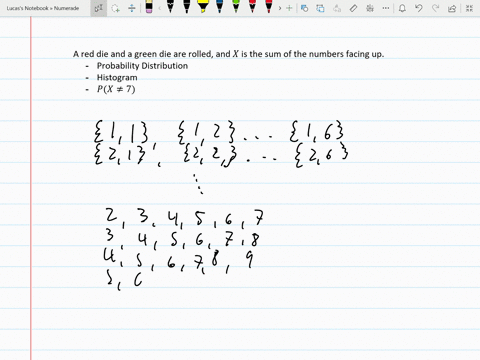 Lucas's Notebook » Numerade
A red die and a green die are rolled, and X is the sum of the numbers facing up.
- Probability Distribution
- Histogram
- P(X ≠ 7)
{1,1}, {1,2} ... {1,6}
{2,1}, {2,2,} ... {2,6}
⋱
2, 3, 4, 5, 6, 7
3, 4, 5, 6, 7, 8
4, 5, 6, 7, 8, 9
5,